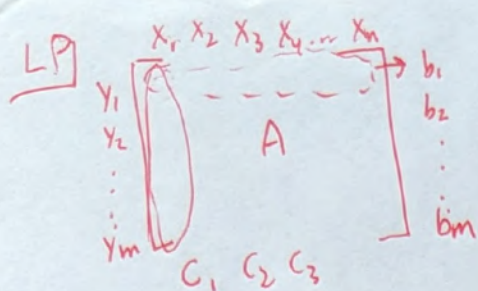 LP
X₁ X₂ X₃ X₄ ... Xn
y₁ b₁
y₂ A b₂
⋮ ⋮
ym bm
C₁ C₂ C₃